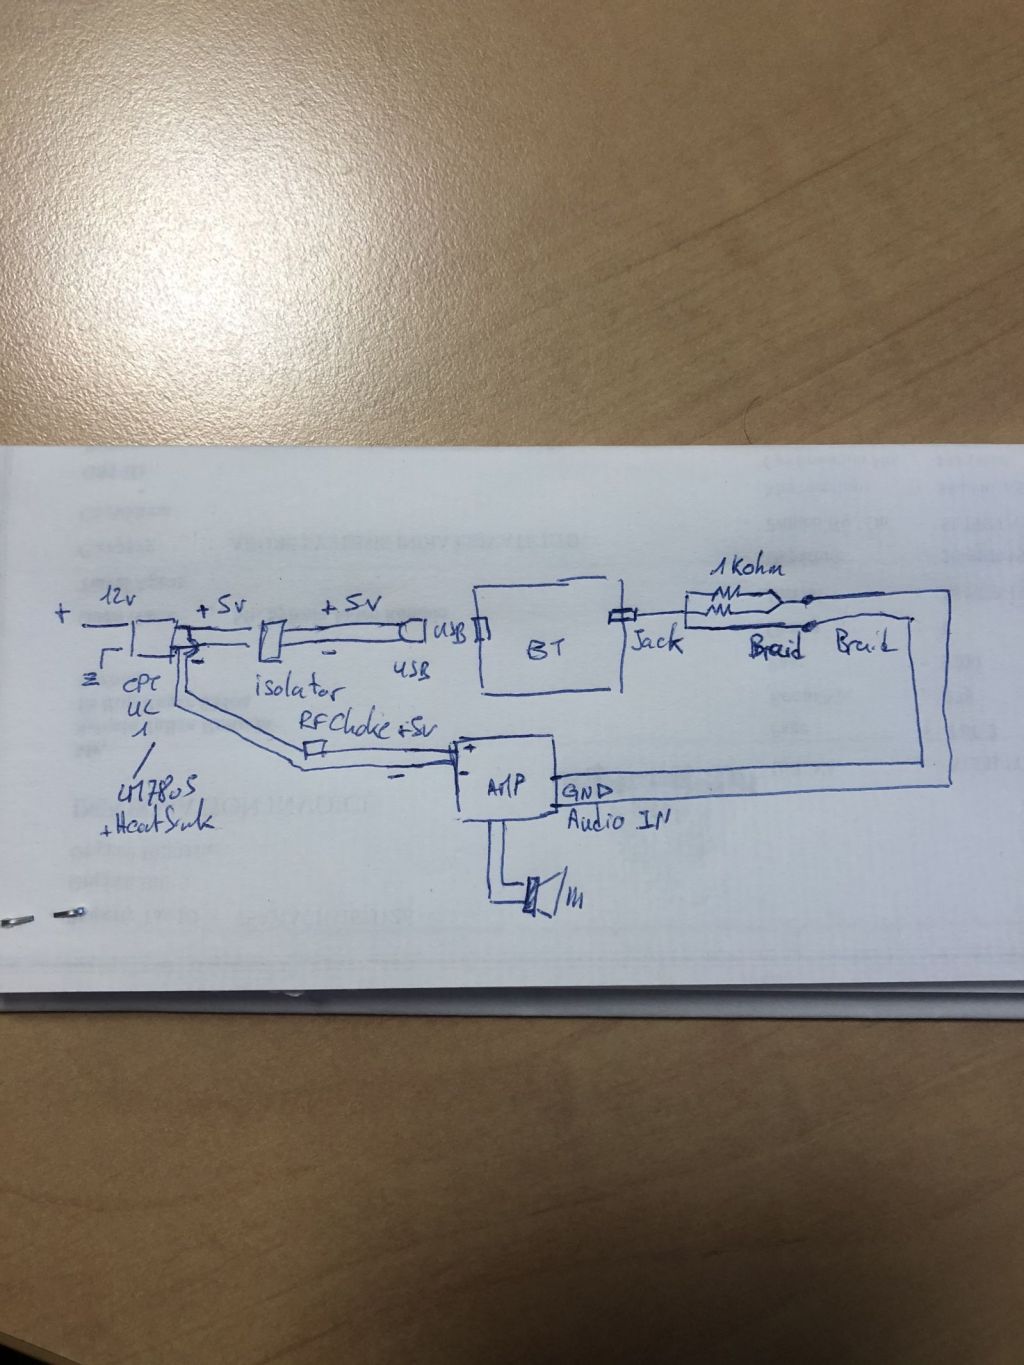 1Kohm
+ 12v
+ 5v
+ 5v
USB
BT
Jack
Braid
Braid
-
-
USB
isolator
RF Choke +5v
1
LM7805
+ HeatSink
+
-
-
AMP
GND
Audio IN